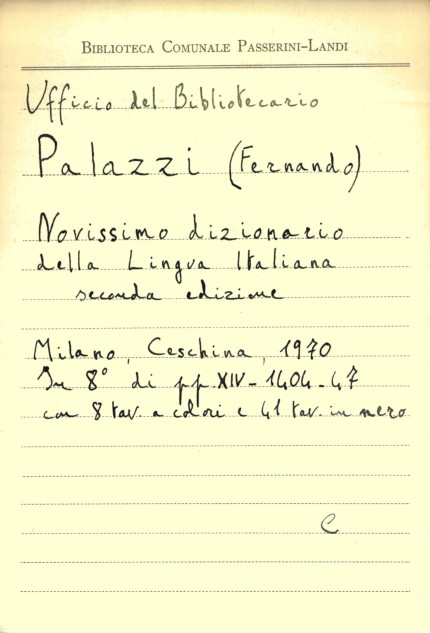 Biblioteca Comunale Passerini-Landi
Ufficio del Bibliotecario
Palazzi (Fernando)
Novissimo dizionario
della Lingua Italiana
seconda edizione
Milano, Ceschina, 1970
In 8° di pp XIV-1404-47
con 8 tav. a colori e 41 tav. in nero
C